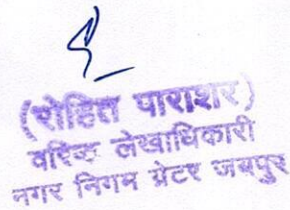 (रोहित पाराशर)
वरिष्ठ लेखाधिकारी
नगर निगम ग्रेटर जयपुर